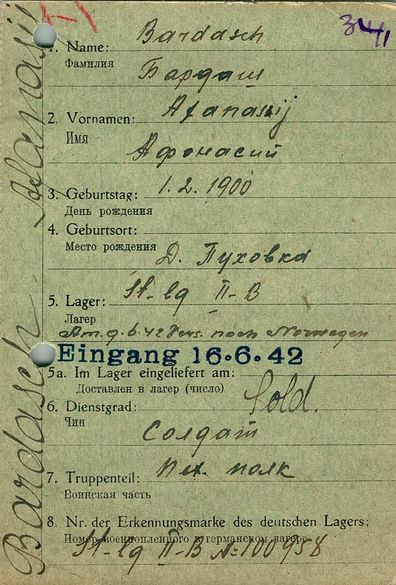 1. Name: Bardasch
Фамилия Бардаш
2. Vornamen: Afanasij
Имя Афонасий
3. Geburtstag: 1. 2. 1900
День рождения
4. Geburtsort:
Место рождения Д. Пуховка
5. Lager: St-lg II-B
Лагер
Am 9.6.42 Vers. nach Norwegen
Eingang 16.6.42
5a. Im Lager eingeliefert am:
Доставлен в лагер (число)
6. Dienstgrad: Sold.
Чин Солдат
7. Truppenteil: Пех. полк
Воинская часть
8. Nr. der Erkennungsmarke des deutschen Lagers:
Номер военнопленного в германском лагере
St-lg II-B № 100958
Bardasch Afanasij